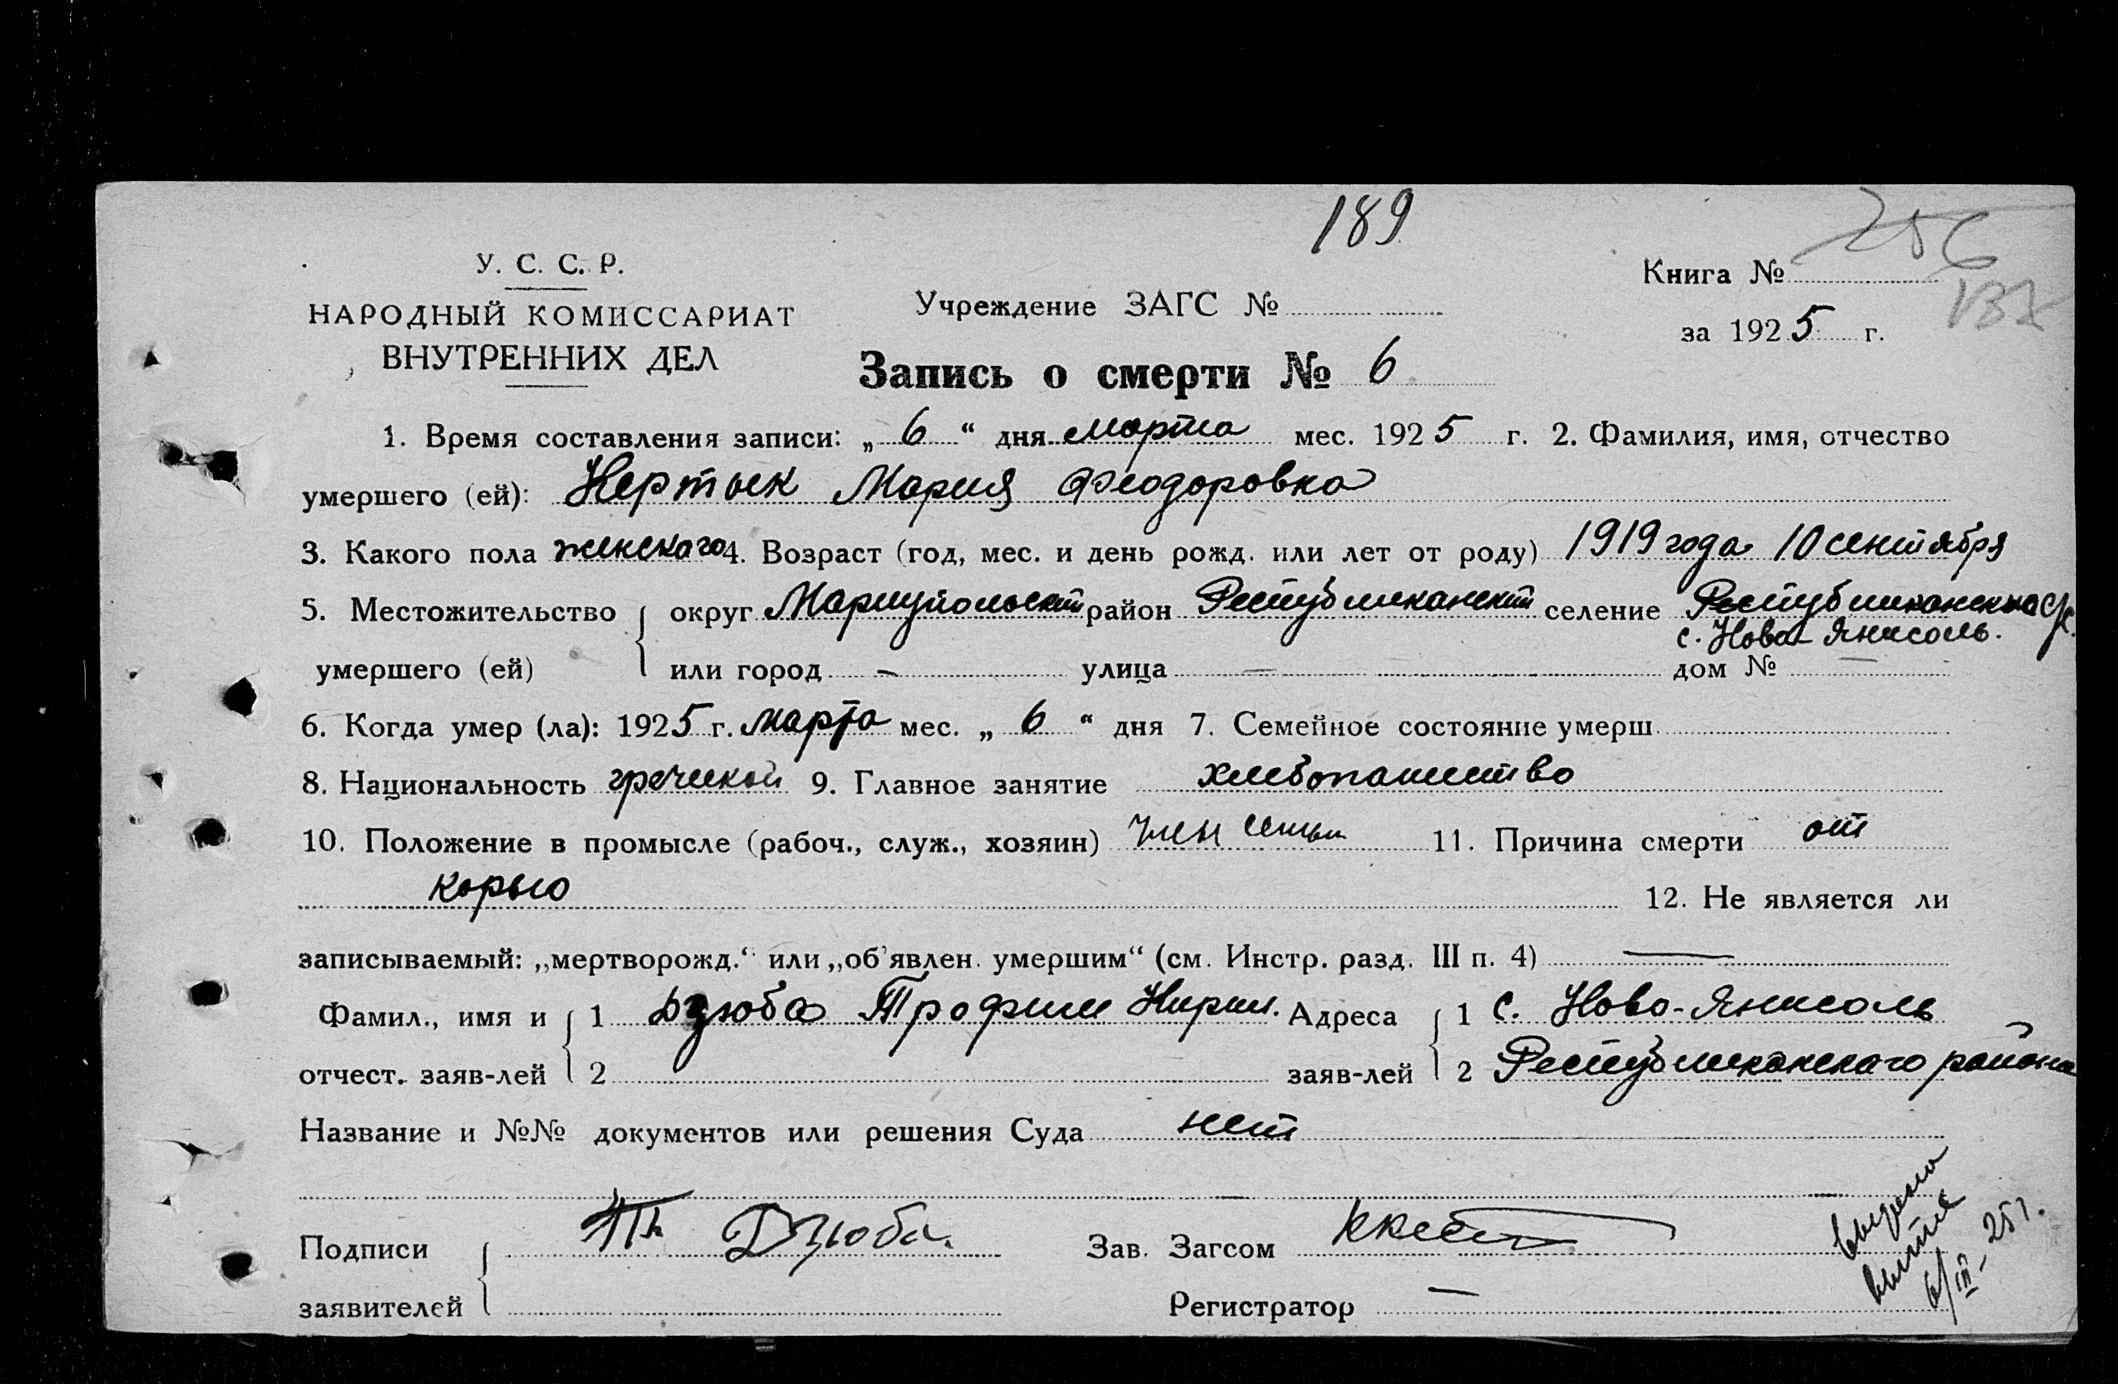 189
256
У. С. С. Р.
Книга №
НАРОДНЫЙ КОМИССАРИАТ
ВНУТРЕННИХ ДЕЛ
Учреждение ЗАГС №
за 1925 г.
Запись о смерти № 6
1. Время составления записи: „6“ дня марта мес. 1925 г. 2. Фамилия, имя, отчество
умершего (ей): Мария Феодоровна
3. Какого пола женскаго 4. Возраст (год, мес. и день рожд. или лет от роду) 1919 года 10 сентября
5. Местожительство округ Мариупольский район Республиканский селение Республиканский
с. Ново-Янисоль.
умершего (ей) или город — улица — дом № —
6. Когда умер (ла): 1925 г. марта мес. „6“ дня 7. Семейное состояние умерш.
8. Национальность греческой 9. Главное занятие хлебопашество
10. Положение в промысле (рабоч., служ., хозяин) член семьи 11. Причина смерти от
корью
12. Не является ли
записываемый: „мертворожд.“ или „об'явлен. умершим“ (см. Инстр. разд. III п. 4) —
Фамил., имя и 1 Дзюба Трофим Адреса 1 с. Ново-Янисоль
отчест. заяв-лей 2 заяв-лей 2 Республиканскаго района
Название и №№ документов или решения Суда нет
Подписи Дзюба. Зав. Загсом
заявителей Регистратор —
6/III-25 г.